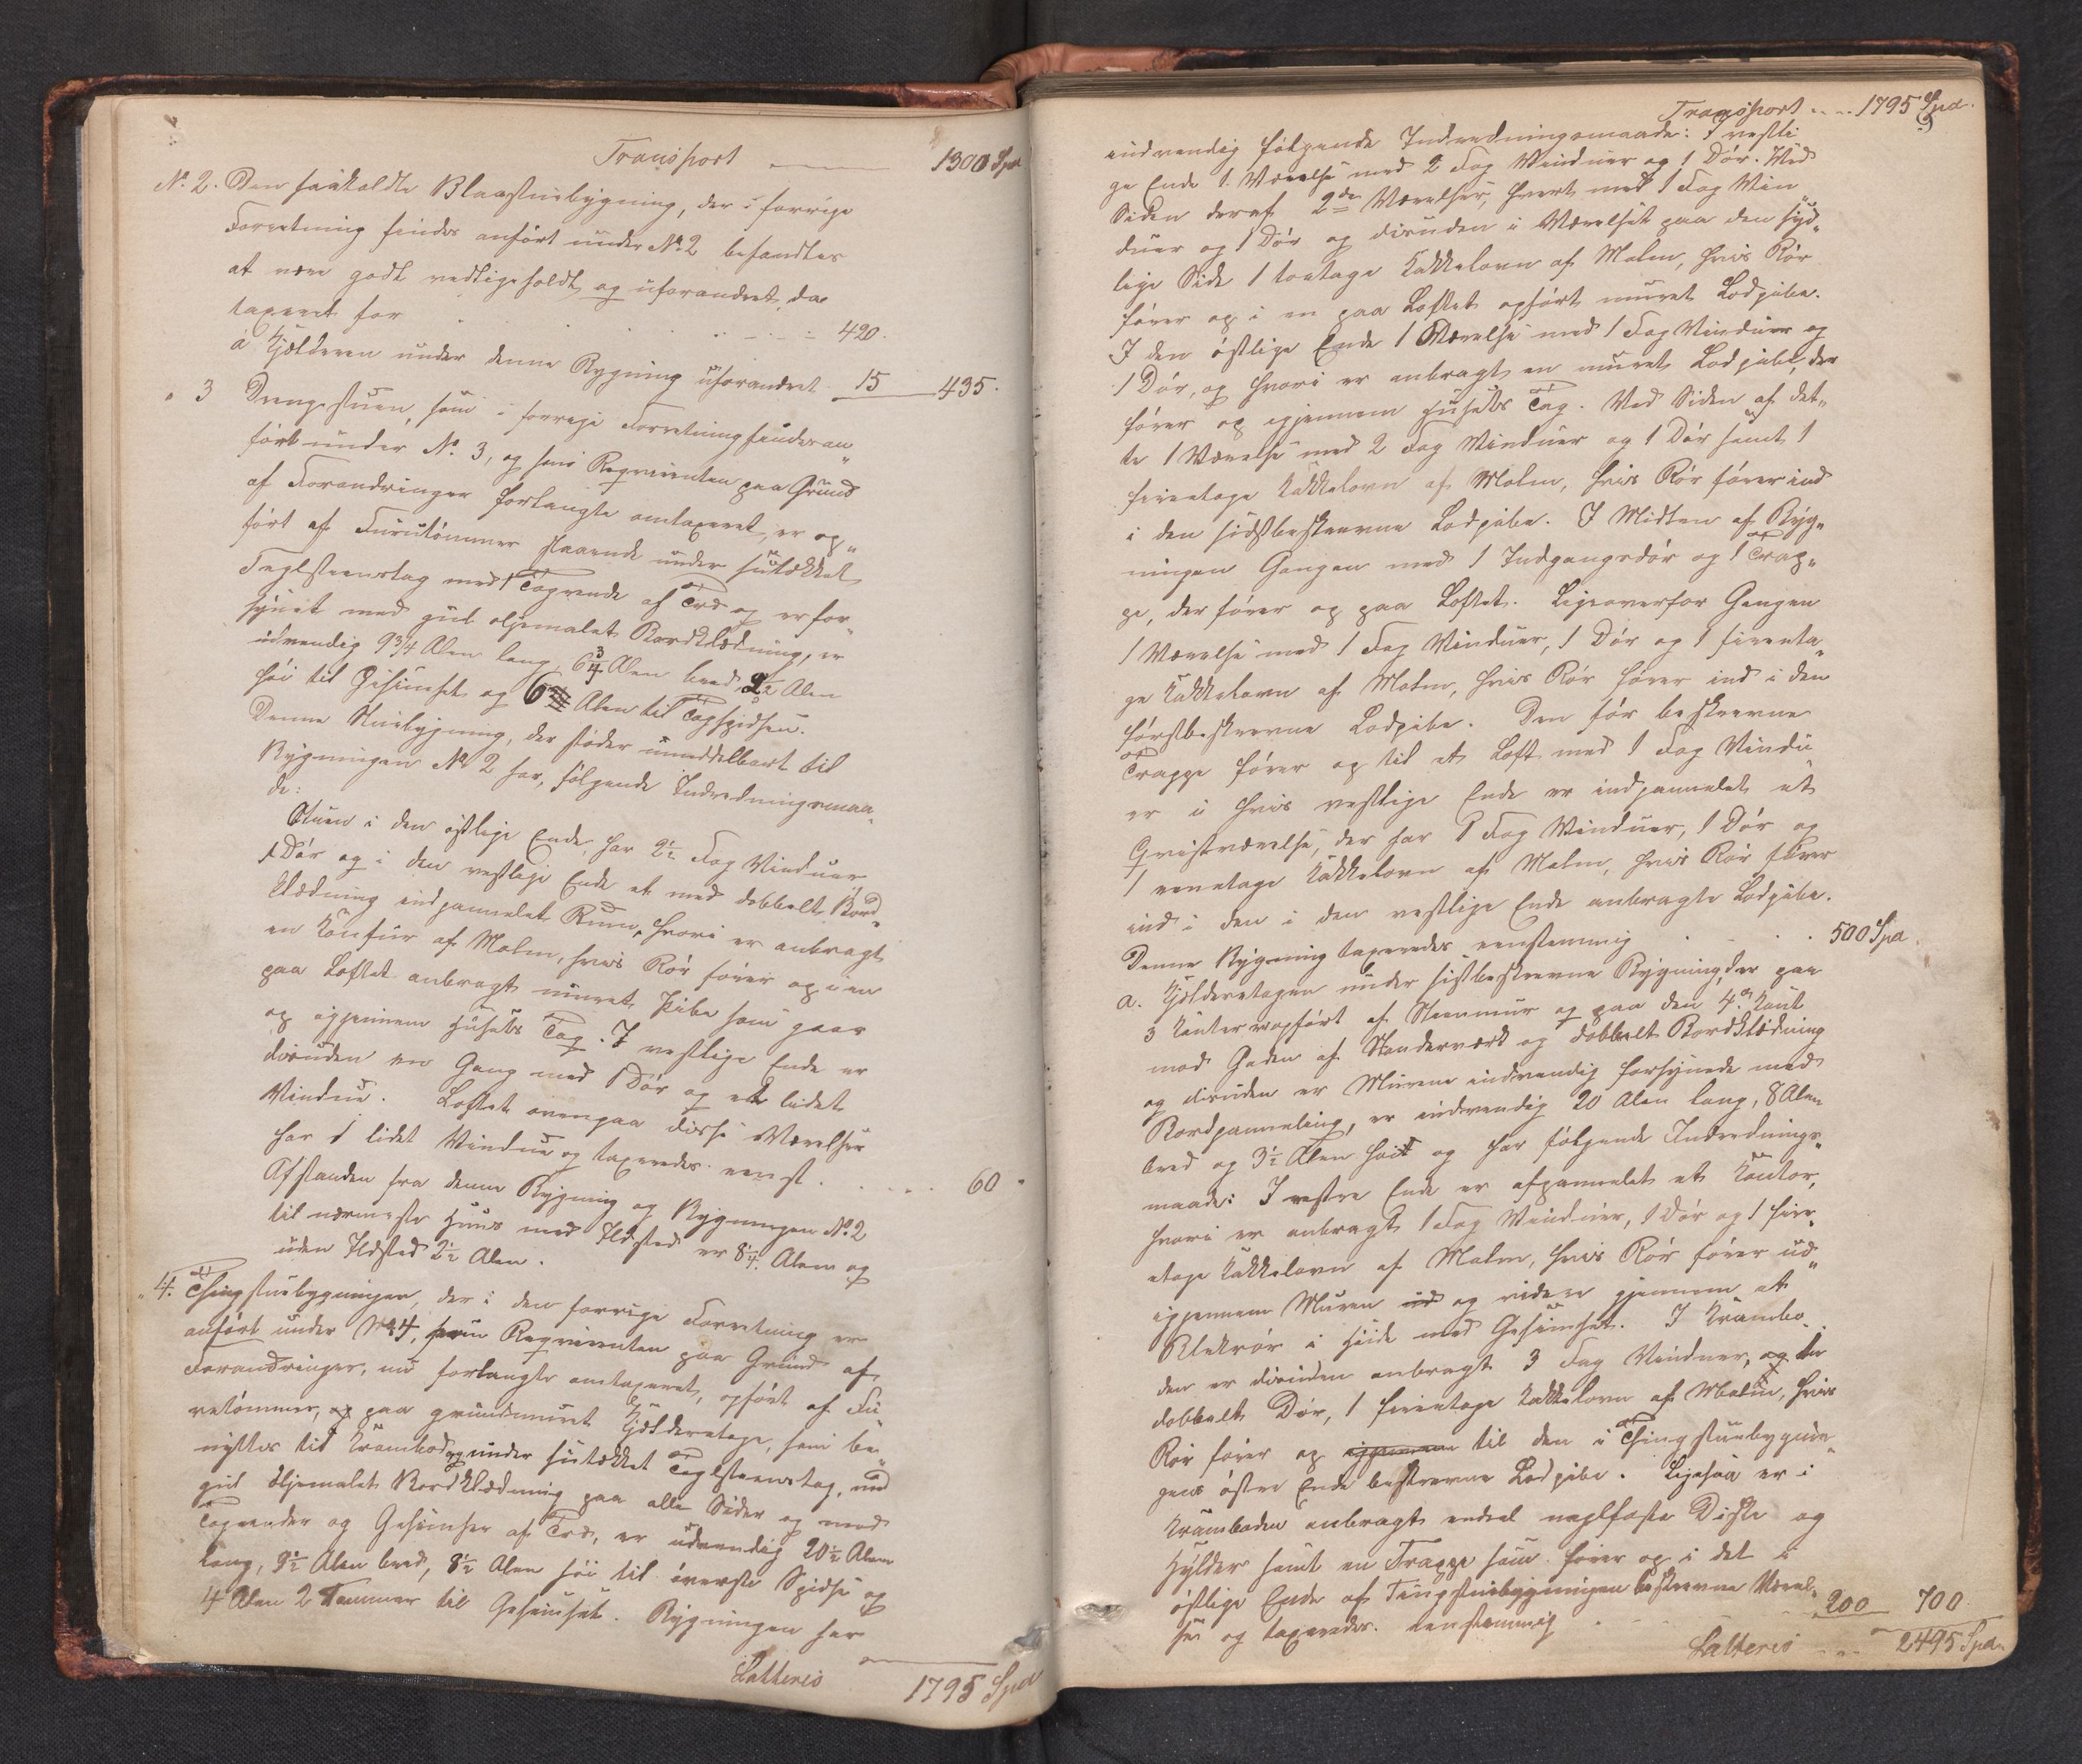 Transport — 1300 Spd
No. 2. Den saakaldte Blaastuebygning, der i forrige
Forretning findes anført under No 2 befandtes
at være godt vedligeholdt og uforandret, da
taxeret for . . . . . 420.
a Kjælderen under denne Bygning uforandret 15 — 435.
" 3 Drengestuen, som i forrige Forretning findes an„
ført under No. 3, og som Reqvirenten paa Grund
af Forandringer forlangte omtaxeret, er op„
ført af Furutømmer staaende under sutækket
Teglsteenstag med 1 Tagrende af Træ og er for„
synet med gul oljemalet Bordklædning, er
udvendig 9 3/4 Alen lang, 6 3/4 Alen bred, 2 1/2 Alen
høi til Gesimset og 6 Alen til Tagspidsen.
Denne Stuebygning, der støder umiddelbart til
Bygningen No 2 har, følgende Indredningsmaa„
de:
Stuen i den østlige Ende, har 2 1/2 Fag Vinduer
1 Dør og i den vestlige Ende et med dobbelt Bord„
klædning indpannelet Rum, hvori er anbragt
en Komfur af Malm, hvis Rør fører op i en
paa Loftet anbragt muret Pibe som gaar
op igjennem Husets Tag. I vestlige Ende er
desuden en Gang med 1 Dør og et lidet
Vindue. Loftet ovenpaa disse Værelser
har 1 lidet Vindue og taxeredes eenst. . . . . . 60 "
Afstanden fra denne Bygning og Bygningen No 2
til nærmeste Huus med Ildsted er 8 1/4 Alen og
uden Ildsted 2 1/2 Alen.
" 4. Thingstuebygningen, der i den forrige Forretning er
anført under No 4, som Reqvirenten paa Grund af
Forandringer, nu forlangte omtaxeret, opført af Fu„
retømmer, og paa grundmuret Kjælderetage, som be„
nyttes til Krambod og under sutækket Teglsteenstag, med
gul oljemalet Bordklædning paa alle Sider og med
Tagrender og Gesimser af Træ, er udvendig 20 1/2 Alen
lang, 9 1/2 Alen bred, 8 1/2 Alen høi til øverste Spidse og
4 Alen 2 Tommer til Gesimset. Bygningen har
Latteris 1795 Spd
Transport . . . . 1795 Spd.
indvendig følgende Indredningsmaade: I vestli
ge Ende 1 Værelse med 2 Fag Vinduer og 1 Dør. Ved
Siden deraf 2de Værelser, hvert med 1 Fag Vin„
duer og 1 Dør og desuden i Værelset paa den syd„
lige Side 1 toetage Kakkelovn af Malm, hvis Rør
fører op i en paa Loftet opført muret Lodpibe.
I den østlige Ende 1 Værelse med 1 Fag Vinduer og
1 Dør, og hvori er anbragt en muret Lodpibe, der
fører op igjennem Husets Tag. Ved Siden af det„
te 1 Værelse med 2 Fag Vinduer og 1 Dør samt 1
fireetage Kakkelovn af Malm, hvis Rør fører ind
i den sidstbeskrevne Lodpibe. I Midten af Byg„
ningen Gangen med 1 Indgangsdør og 1 Trap„
pe, der fører op paa Loftet. Ligeoverfor Gangen
1 Værelse med 1 Fag Vinduer, 1 Dør og 1 fireeta„
ge Kakkelovn af Malm, hvis Rør fører ind i den
førstbeskrevne Lodpibe. Den før beskrevne
Trappe fører op til et Loft med 1 Fag Vindu
er i hvis vestlige Ende er indpannelet et
Qvistværelse, der har 1 Fag Vinduer, 1 Dør og
1 eenetage Kakkelovn af Malm, hvis Rør fører
ind i den i den vestlige Ende anbragte Lodpibe.
Denne Bygning taxeredes eenstemmig . . . . 500 Spd.
a. Kjælderetagen under sistbeskrevne Bygning, der paa
3 Kanter er opført af Steenmur og paa den 4de Kant
mod Gaden af Standerværk og dobbelt Bordklædning
og desuden er Murene indvendig forsynede med
Bordpanneling, er indvendig 20 Alen lang, 8 Alen
bred og 3 1/2 Alen høit og har følgende Indrednings„
maade: I vestre Ende er afpannelet et Kontor,
hvori er anbragt 1 Fag Vinduer, 1 Dør og 1 fire„
etage Kakkelovn af Malm, hvis Rør fører ud„
igjennem Muren ud og videre gjennem et
Blekrør i Høide med Gesimset. I Krambo„
den er desuden anbragt 3 Fag Vinduer, og en
dobbelt Dør, 1 fireetage Kakkelovn af Malm, hvis
Rør fører op igjennem til den i Thingstuebygnin„
gens østre Ende beskrevne Lodpibe. Ligesaa er i
Kramboden anbragt endeel naglfaste Diske og
Hylder samt en Trappe som fører op i det i
østlige Ende af Tingstuebygningen beskrevne Værel„
se og taxeredes eenstemmig . . . 200 — 700
Latteris . . . 2495 Spd.